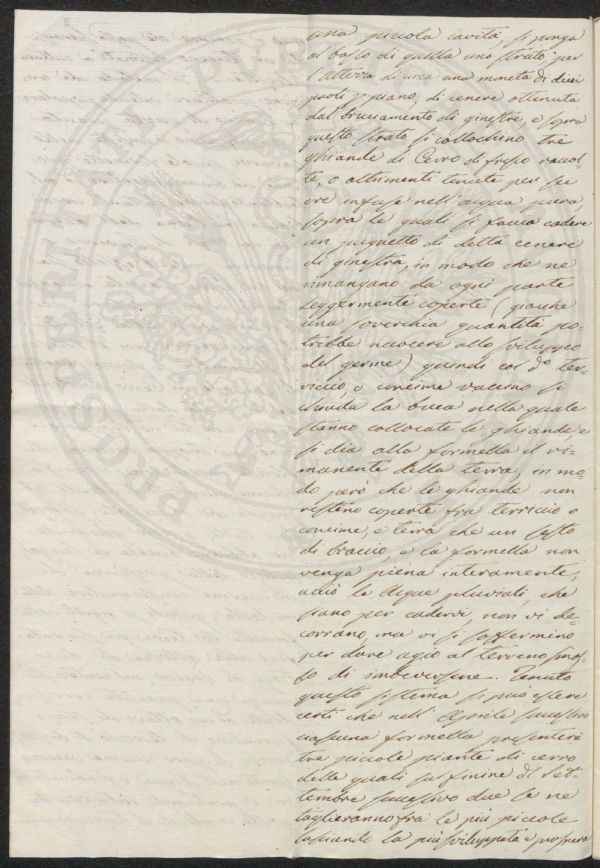 una piccola cavità, si ponga
al basso di quella uno strato per
l'altezza di circa una moneta di dieci
paoli p piano, di cenere ottenuta
dal bruciamento di ginestre, e sopra
questo strato si collochino tre
ghiande di Cerro di fresco raccol=
te, o altrimenti tenute per sei
ore infuse nell'acqua pura,
sopra le quali si faccia cadere
un pugnetto di detta cenere
di ginestra, in modo che ne
rimangano da ogni parte
leggermente coperte (giacchè
una soverchia quantità po=
trebbe nuocere allo sviluppo
del germe) quindi col do ter=
riccio, o concime vaccino si
chiuda la buca nella quale
stanno collocate le ghiande, e
si dia alla formella il ri=
manente della terra, in mo=
do però che le ghiande non
restino coperte fra terriccio o
concime, e terra che un sesto
di braccio, e la formella non
venga piena interamente,
acciò le Acque pluviali, che
siano per cadervi, non vi de=
corrano, ma vi si soffermino
per dare agio al terreno smos=
so di imbeversene. Tenuto
questo sistema si può essere
certi che nell'Aprile successivo
ciascuna formella presenterà
tre piccole piante di cerro
delle quali sul finire di Set=
tembre successivo due se ne
taglieranno fra le più piccole
lasciando la più sviluppata e prospera
PROSPERITATI PUBLICAE